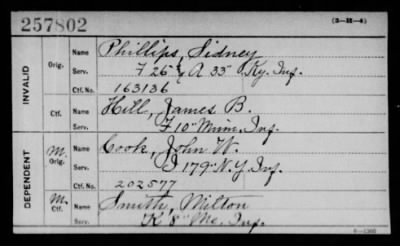 257802
(3-12-4)
INVALID
Orig.
Name Phillips, Sidney
Serv. F 26" & A 33" Ky. Inf.
Ctf. No. 163136
Ctf.
Name Hill, James B.
Serv. F 10" Minn. Inf.
DEPENDENT
M. Orig.
Name Cook, John W.
Serv. I 179" N.Y. Inf.
Ctf. No. 202577
M. Ctf.
Name Smith, Milton
Serv. K 8" Me. Inf.